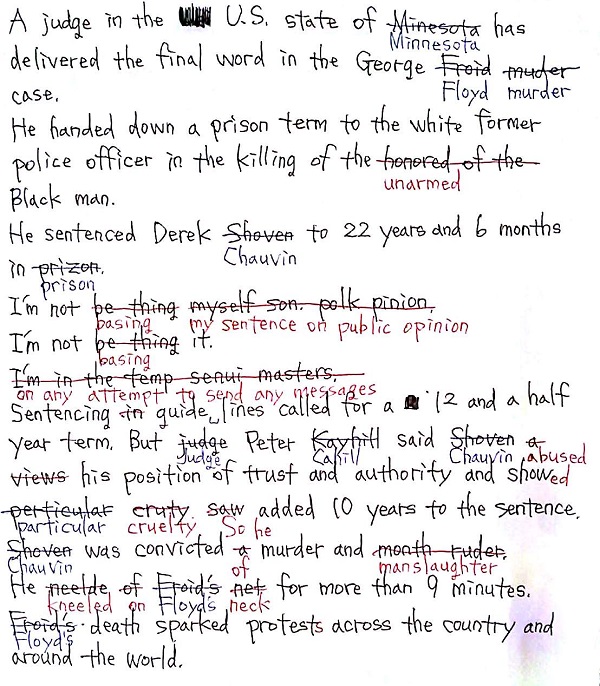 A judge in the U.S. state of Minesota has
Minnesota
delivered the final word in the George Froid muder
Floyd murder
case.
He handed down a prison term to the white former
police officer in the killing of the honored of the
unarmed
Black man.
He sentenced Derek Shoven to 22 years and 6 months
Chauvin
in prizon.
prison
I'm not be thing myself son. polk pinion.
basing my sentence on public opinion
I'm not be thing it.
basing
I'm in the temp senui masters.
on any attempt to send any messages
Sentencing in guide lines called for a 12 and a half
year term. But judge Peter Kayhill said Shoven a
Judge Cahill Chauvin abused
views his position of trust and authority and showed
perticular cruty. saw added 10 years to the sentence.
particular cruelty So he
Shoven was convicted a murder and month ruder.
Chauvin of manslaughter
He neelde of Froid's net for more than 9 minutes.
kneeled on Floyd's neck
Froid's death sparked protests across the country and
Floyd's
around the world.